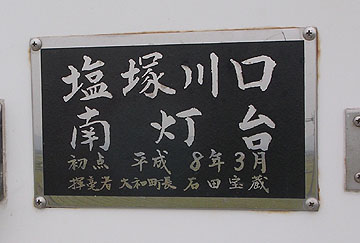 塩塚川口
南灯台
初点 平成8年3月
揮毫者 大和町長 石田宝蔵